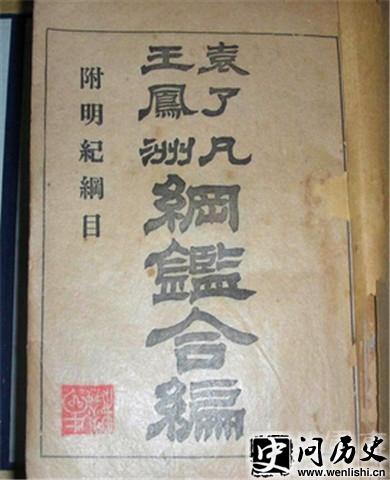 袁了凡
王鳳洲
綱鑑合編
附明紀綱目
史问历史
www.wenlishi.cn